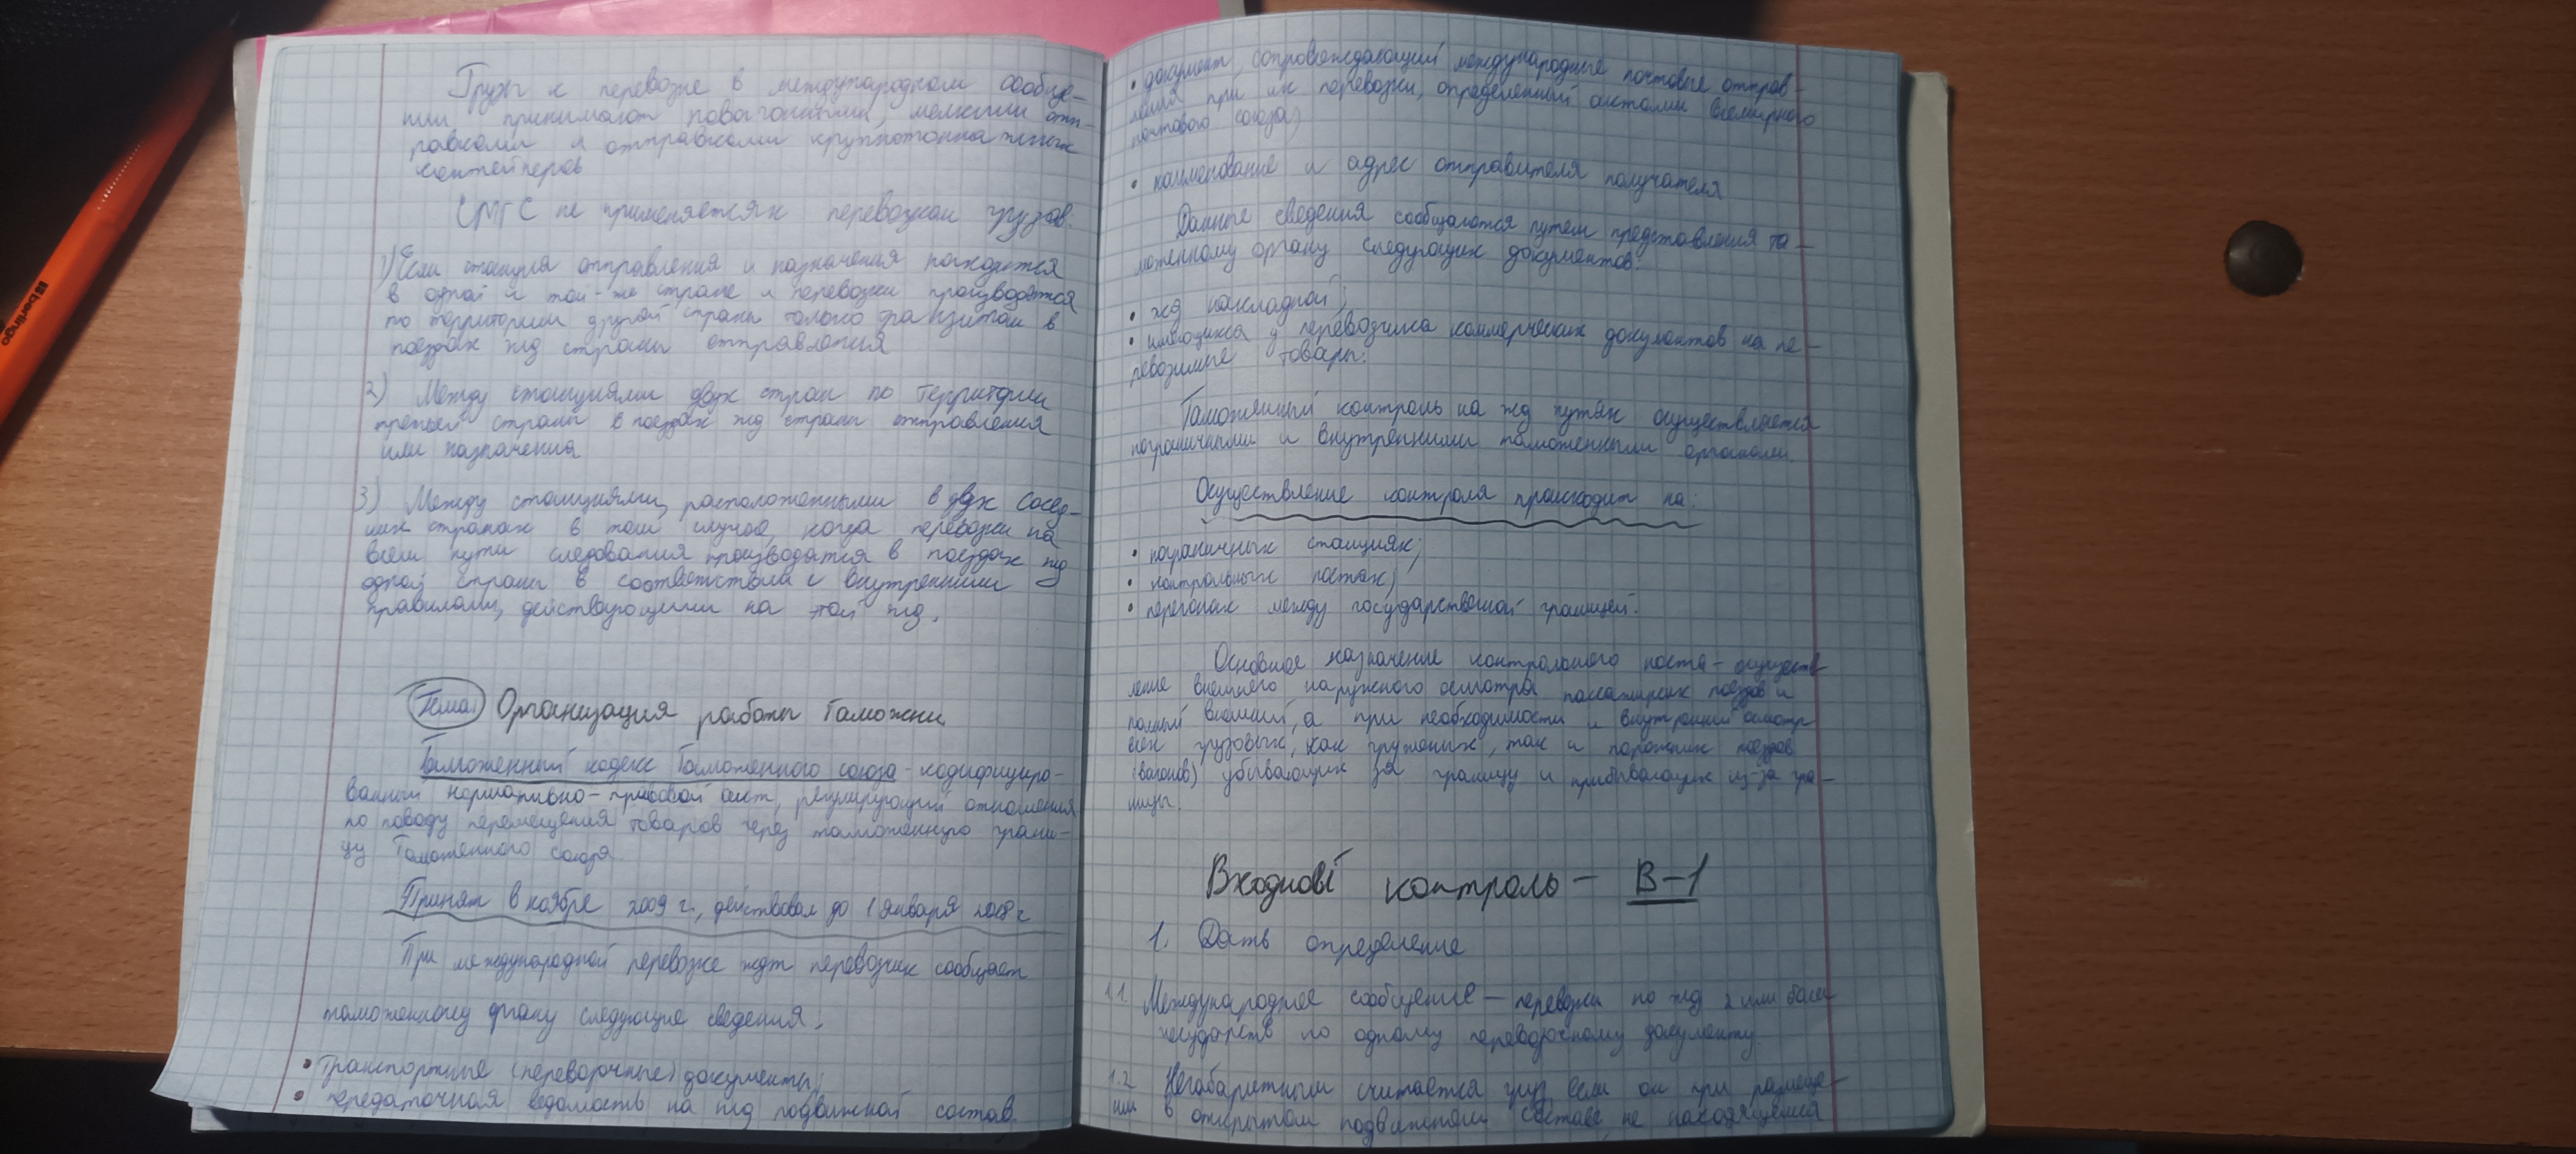 Грузы к перевозке в международном сообще-
нии принимают повагонными, мелкими отп-
равками и отправками крупнотоннажных
контейнеров
СМГС не применяется к перевозкам грузов:
1) Если станция отправления и назначения находятся
в одной и той-же стране и перевозки производятся
по территории другой страны только транзитом в
поездах жд страны отправления
2) Между станциями двух стран по территории
третьей страны в поездах жд страны отправления
или назначения
3) Между станциями, расположенными в двух сосед-
них странах в том случае, когда перевозки на
всем пути следования производятся в поездах жд
одной страны в соответствии с внутренними
правилами, действующими на этой жд.
Тема: Организация работы Таможни.
Таможенный кодекс Таможенного союза - кодифициро-
ванный нормативно-правовой акт, регулирующий отношения
по поводу перемещения товаров через таможенную грани-
цу Таможенного союза.
Принят в ноябре 2009 г., действовал до 1 января 2018 г.
При международной перевозке ждт перевозчик сообщает
таможенному органу следующие сведения.
• Транспортные (перевозочные) документы;
• передаточная ведомость на жд подвижной состав.
berlingo
• документ, сопровождающий международные почтовые отправ-
лений при их перевозки, определенный актами всемирного
почтового союза;
• наименование и адрес отправителя получателя
Данные сведения сообщаются путем представления та-
моженному органу следующих документов:
• жд накладной;
• имеющихся у перевозчика коммерческих документов на пе-
ревозимые товары:
Таможенный контроль на жд путях осуществляется
пограничными и внутренними таможенными органами.
Осуществление контроля происходит на:
• пограничных станциях;
• контрольных постах;
• перегонах между государственной границей.
Основное назначение контрольного поста - осуществ
ление внешнего наружного осмотра пассажирских поездов и
полный внешний, а при необходимости и внутренний осмотр
всех грузовых, как груженых, так и порожних поездов
(вагонов) убывающих за границу и прибывающих из-за гра-
ницы.
Входной контроль - В-1
1. Дать определение
1.1. Международное сообщение - перевозки по жд 2 или более
государств по одному перевозочному документу.
1.2 Негабаритным считается груз если он при размеще-
нии в открытом подвижном составе, не находящемся